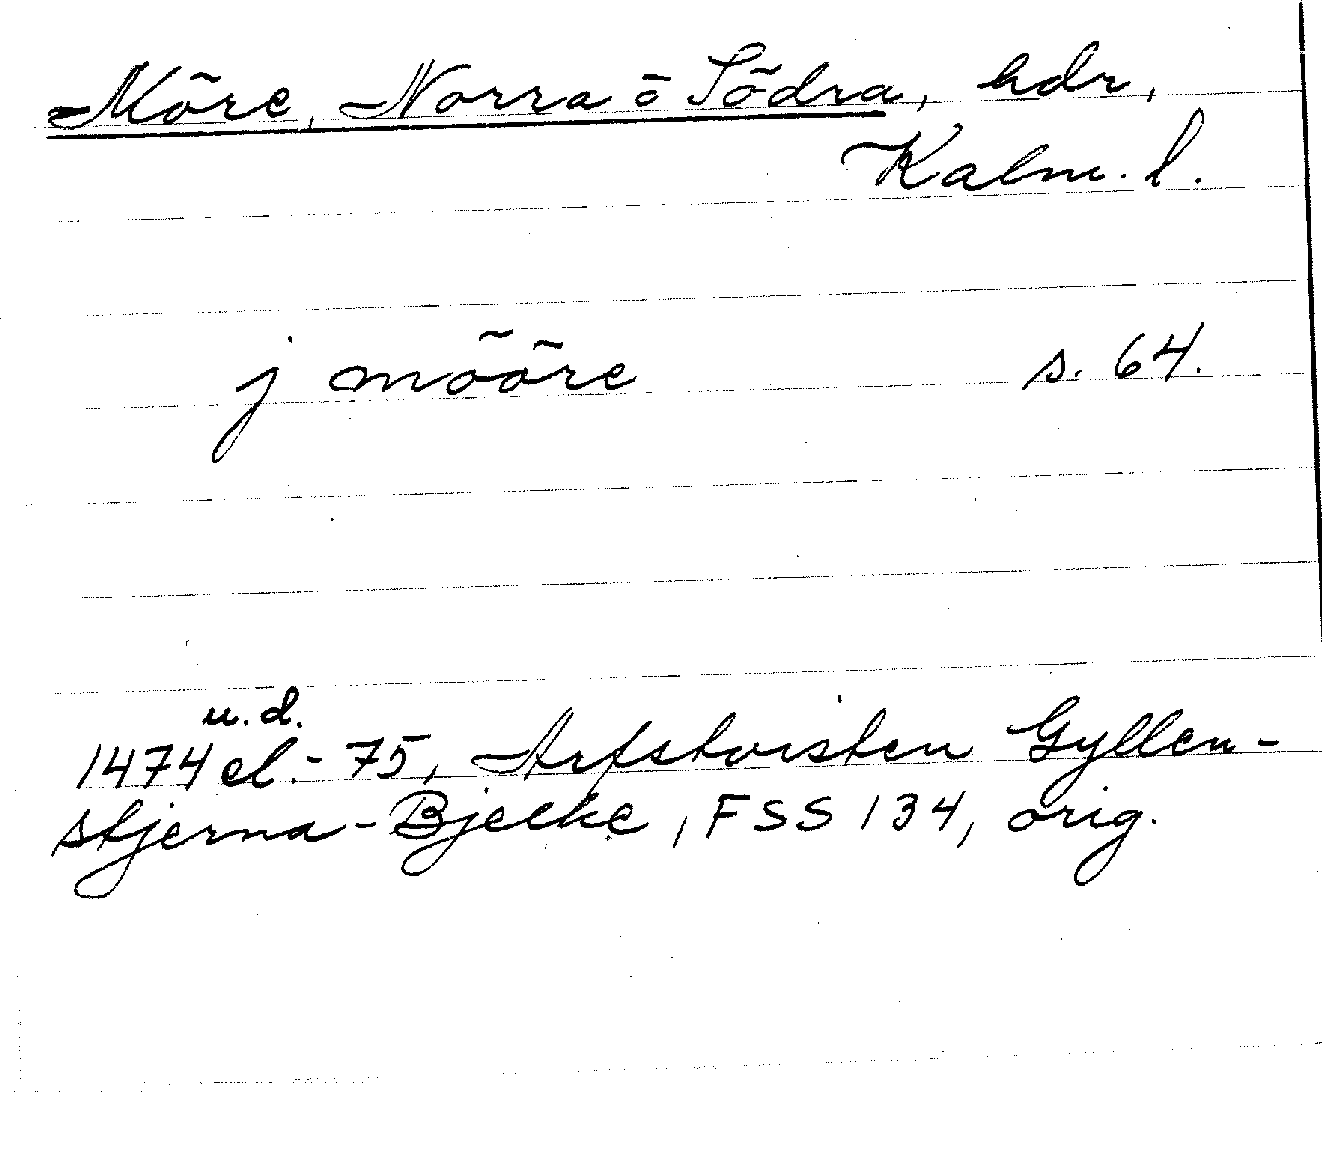 Möre, Norra o Södra, hdr,
Kalm. l.
j mööre s. 64.
u. d.
1474 el.-75, Arfstvisten Gyllen-
stjerna-Bjelke, FSS 134, orig.